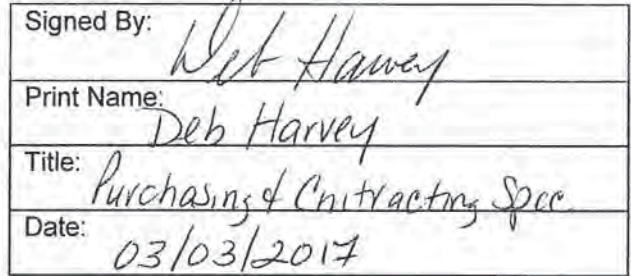 Signed By: Deb Harvey
Print Name: Deb Harvey
Title: Purchasing & Cnitracting Spec.
Date: 03/03/2017